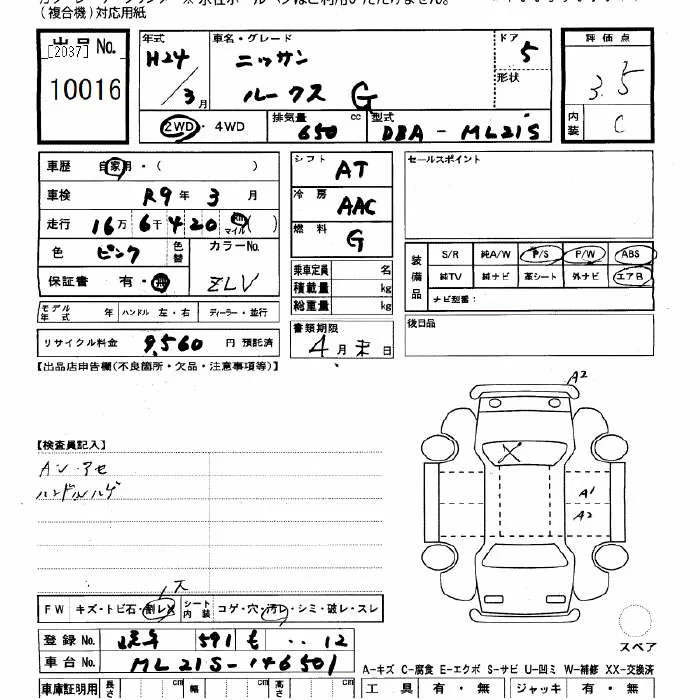 (複合機)対応用紙
出品 No.
[2037]
10016
年式
H24
/3月
車名・グレード
ニッサン
ルークス G
ドア
5
形状
2WD・4WD
排気量 650 cc
型式 DBA-ML21S
評価点
3.5
内装
C
車歴 自家用・( )
車検 R9年 3 月
走行 16万 6千 420 km マイル ( )
色 ピンク 色替
カラーNo.
ZLV
保証書 有・無
シフト AT
冷房 AAC
燃料 G
乗車定員 名
積載量 kg
総重量 kg
セールスポイント
装備品
S/R 純A/W P/S P/W ABS
純TV 純ナビ 革シート 外ナビ エアB
ナビ型番:
モデル年式 年 ハンドル 左・右 ディーラー・並行
リサイクル料金 9,560 円 預託済
書類期限
4月末日
後日品
【出品店申告欄(不良箇所・欠品・注意事項等)】
【検査員記入】
ハンドルハゲ
A2
X
A1
A2
FW キズ・トビ石・割レX
シート内装 コゲ・穴・汚レ・シミ・破レ・スレ
登録 No. 591 も ・・12
車台 No. ML21S-146501
スペア
A-キズ C-腐食 E-エクボ S-サビ U-凹ミ W-補修 XX-交換済
車庫証明用 長さ cm 幅 cm 高さ cm
工具 有・無 ジャッキ 有・無